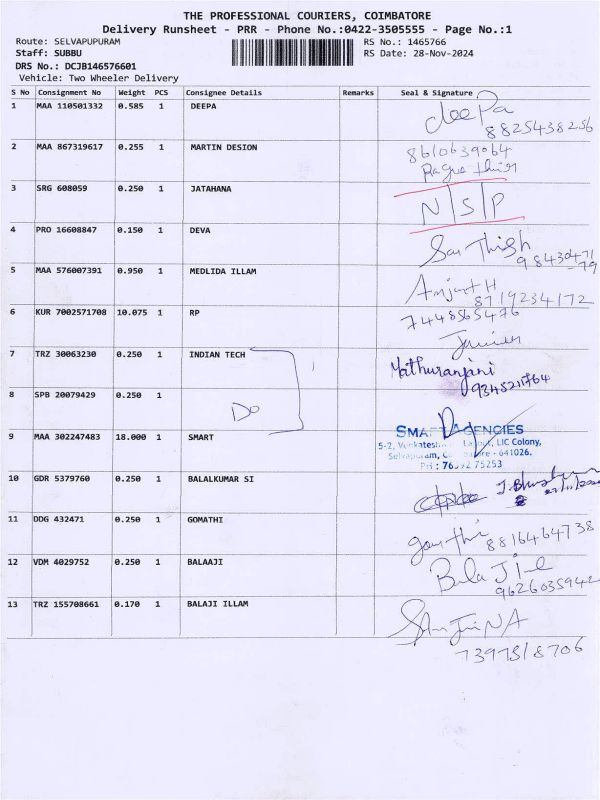 THE PROFESSIONAL COURIERS, COIMBATORE
Delivery Runsheet - PRR - Phone No.:0422-3505555 - Page No.:1
Route: SELVAPUPURAM RS No.: 1465766
Staff: SUBBU RS Date: 28-Nov-2024
DRS No.: DCJB146576601
Vehicle: Two Wheeler Delivery
S No Consignment No Weight PCS Consignee Details Remarks Seal & Signature
1 MAA 110501332 0.585 1 DEEPA deepa
8825438256
2 MAA 867319617 0.255 1 MARTIN DESION 8610639064
3 SRG 608059 0.250 1 JATAHANA N|S|P
4 PRO 16608847 0.150 1 DEVA
5 MAA 576007391 0.950 1 MEDLIDA ILLAM
8719234172
6 KUR 7002571708 10.075 1 RP 7448565476
7 TRZ 30063230 0.250 1 INDIAN TECH Mathuranjani
9345211764
8 SPB 20079429 0.250 1 Do
9 MAA 302247483 18.000 1 SMART SMART AGENCIES
5-2, Venkatesh Layout, LIC Colony,
Selvapuram, Coimbatore - 641026.
10 GDR 5379760 0.250 1 BALALKUMAR SI
11 DDG 432471 0.250 1 GOMATHI
8816464738
12 VDM 4029752 0.250 1 BALAAJI
9626035942
13 TRZ 155708661 0.170 1 BALAJI ILLAM